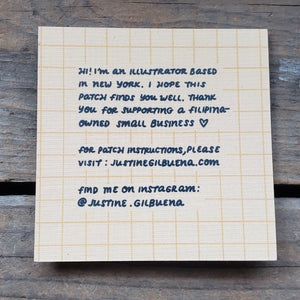 HI! I'M AN ILLUSTRATOR BASED
IN NEW YORK. I HOPE THIS
PATCH FINDS YOU WELL. THANK
YOU FOR SUPPORTING A FILIPINA-
OWNED SMALL BUSINESS ♡
FOR PATCH INSTRUCTIONS, PLEASE
VISIT: JUSTINEGILBUENA.COM
FIND ME ON INSTAGRAM:
@JUSTINE.GILBUENA